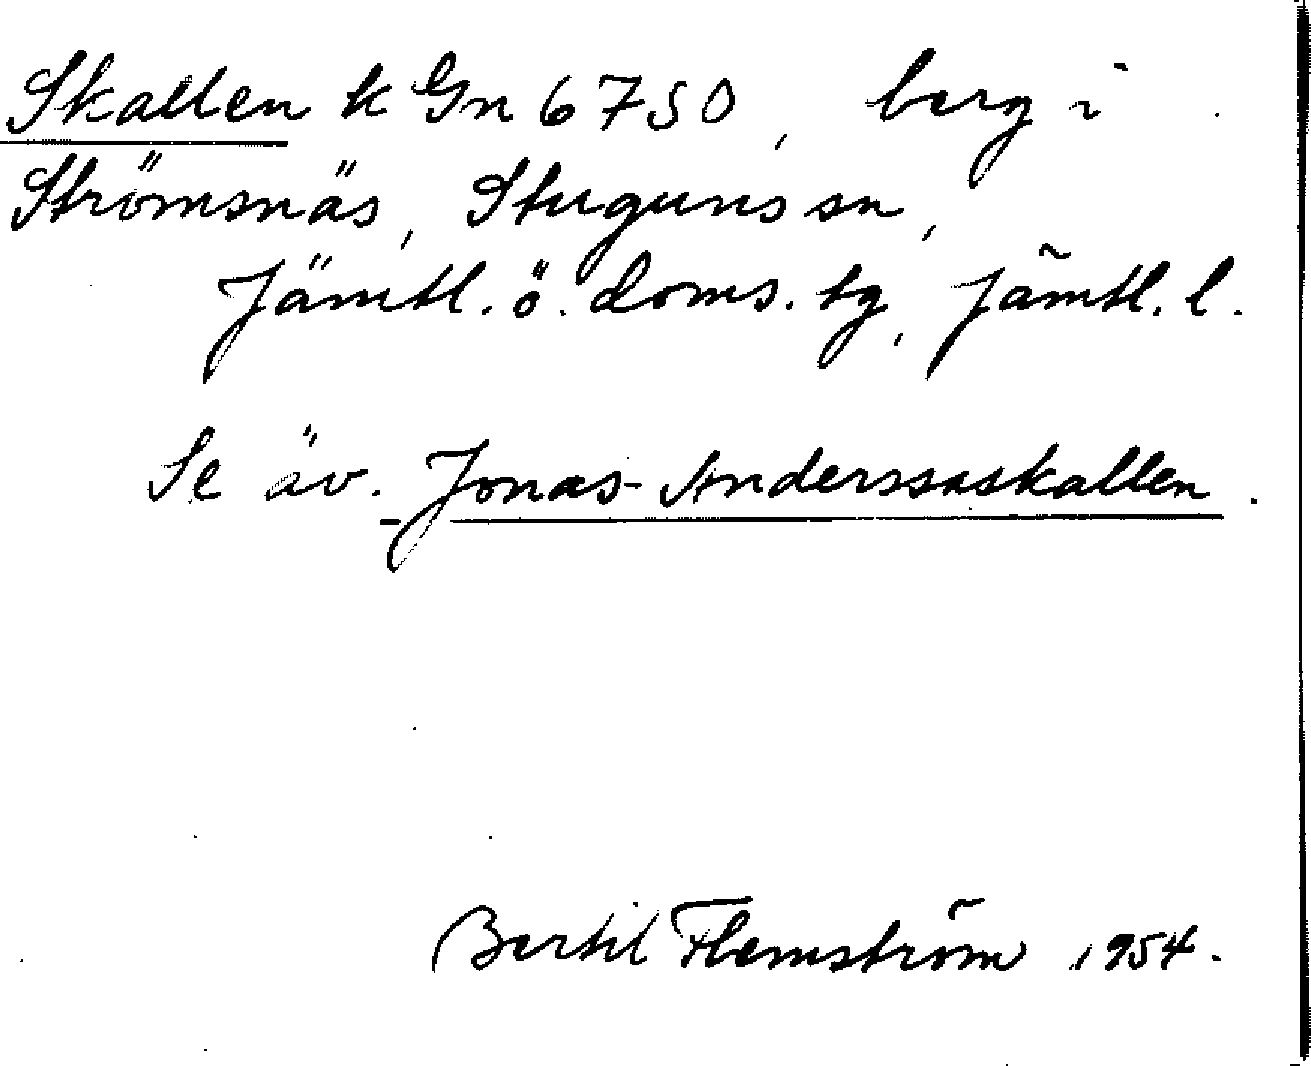 Skallen k Gn 6750, berg i
Strömsnäs, Stuguns sn,
Jämtl. ö. doms. tg, Jämtl. l.
Se äv. Jonas-Anderssaskallen.
Bertil Flemström 1954.